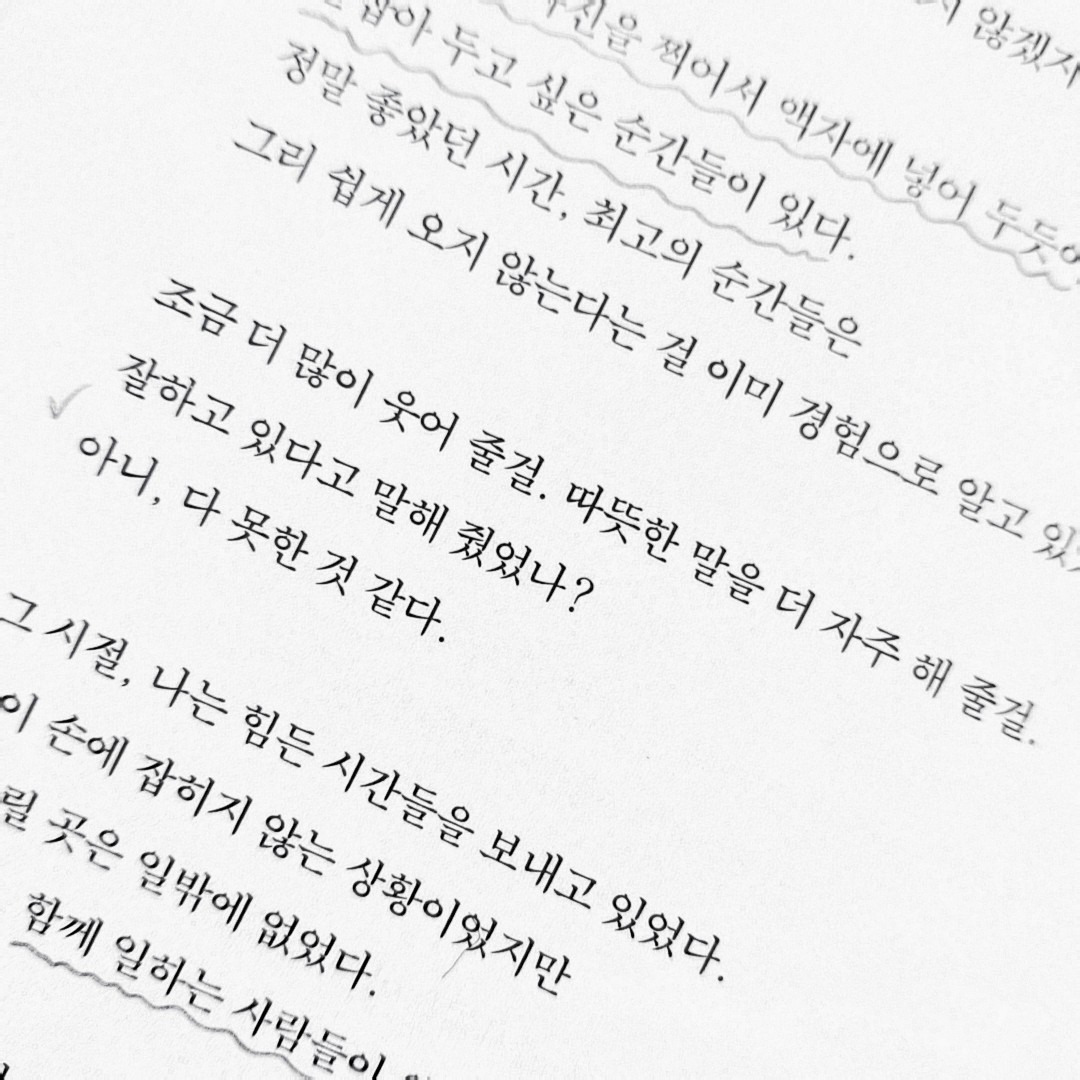 않겠지
사진을 찍어서 액자에 넣어 두듯이,
잡아 두고 싶은 순간들이 있다.
정말 좋았던 시간, 최고의 순간들은
그리 쉽게 오지 않는다는 걸 이미 경험으로 알고 있
조금 더 많이 웃어 줄걸. 따뜻한 말을 더 자주 해 줄걸.
잘하고 있다고 말해 줬었나?
아니, 다 못한 것 같다.
그 시절, 나는 힘든 시간들을 보내고 있었다.
이 손에 잡히지 않는 상황이었지만
릴 곳은 일밖에 없었다.
함께 일하는 사람들이